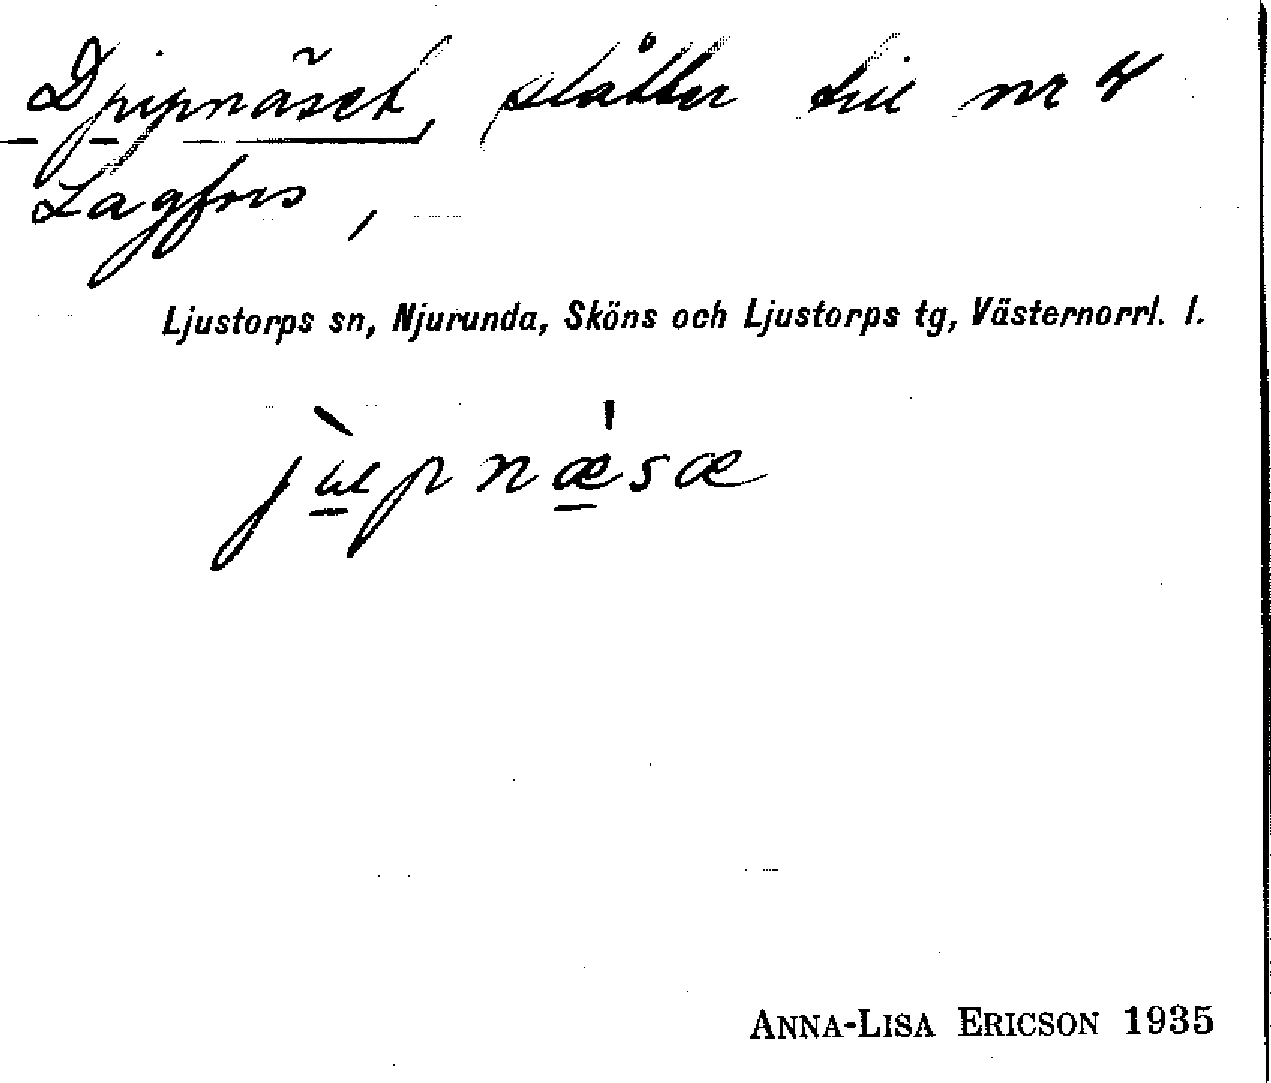 Djupnäset, slåtter till nr 4
Lagfors,
Ljustorps sn, Njurunda, Sköns och Ljustorps tg, Västernorrl. l.
ANNA-LISA ERICSON 1935